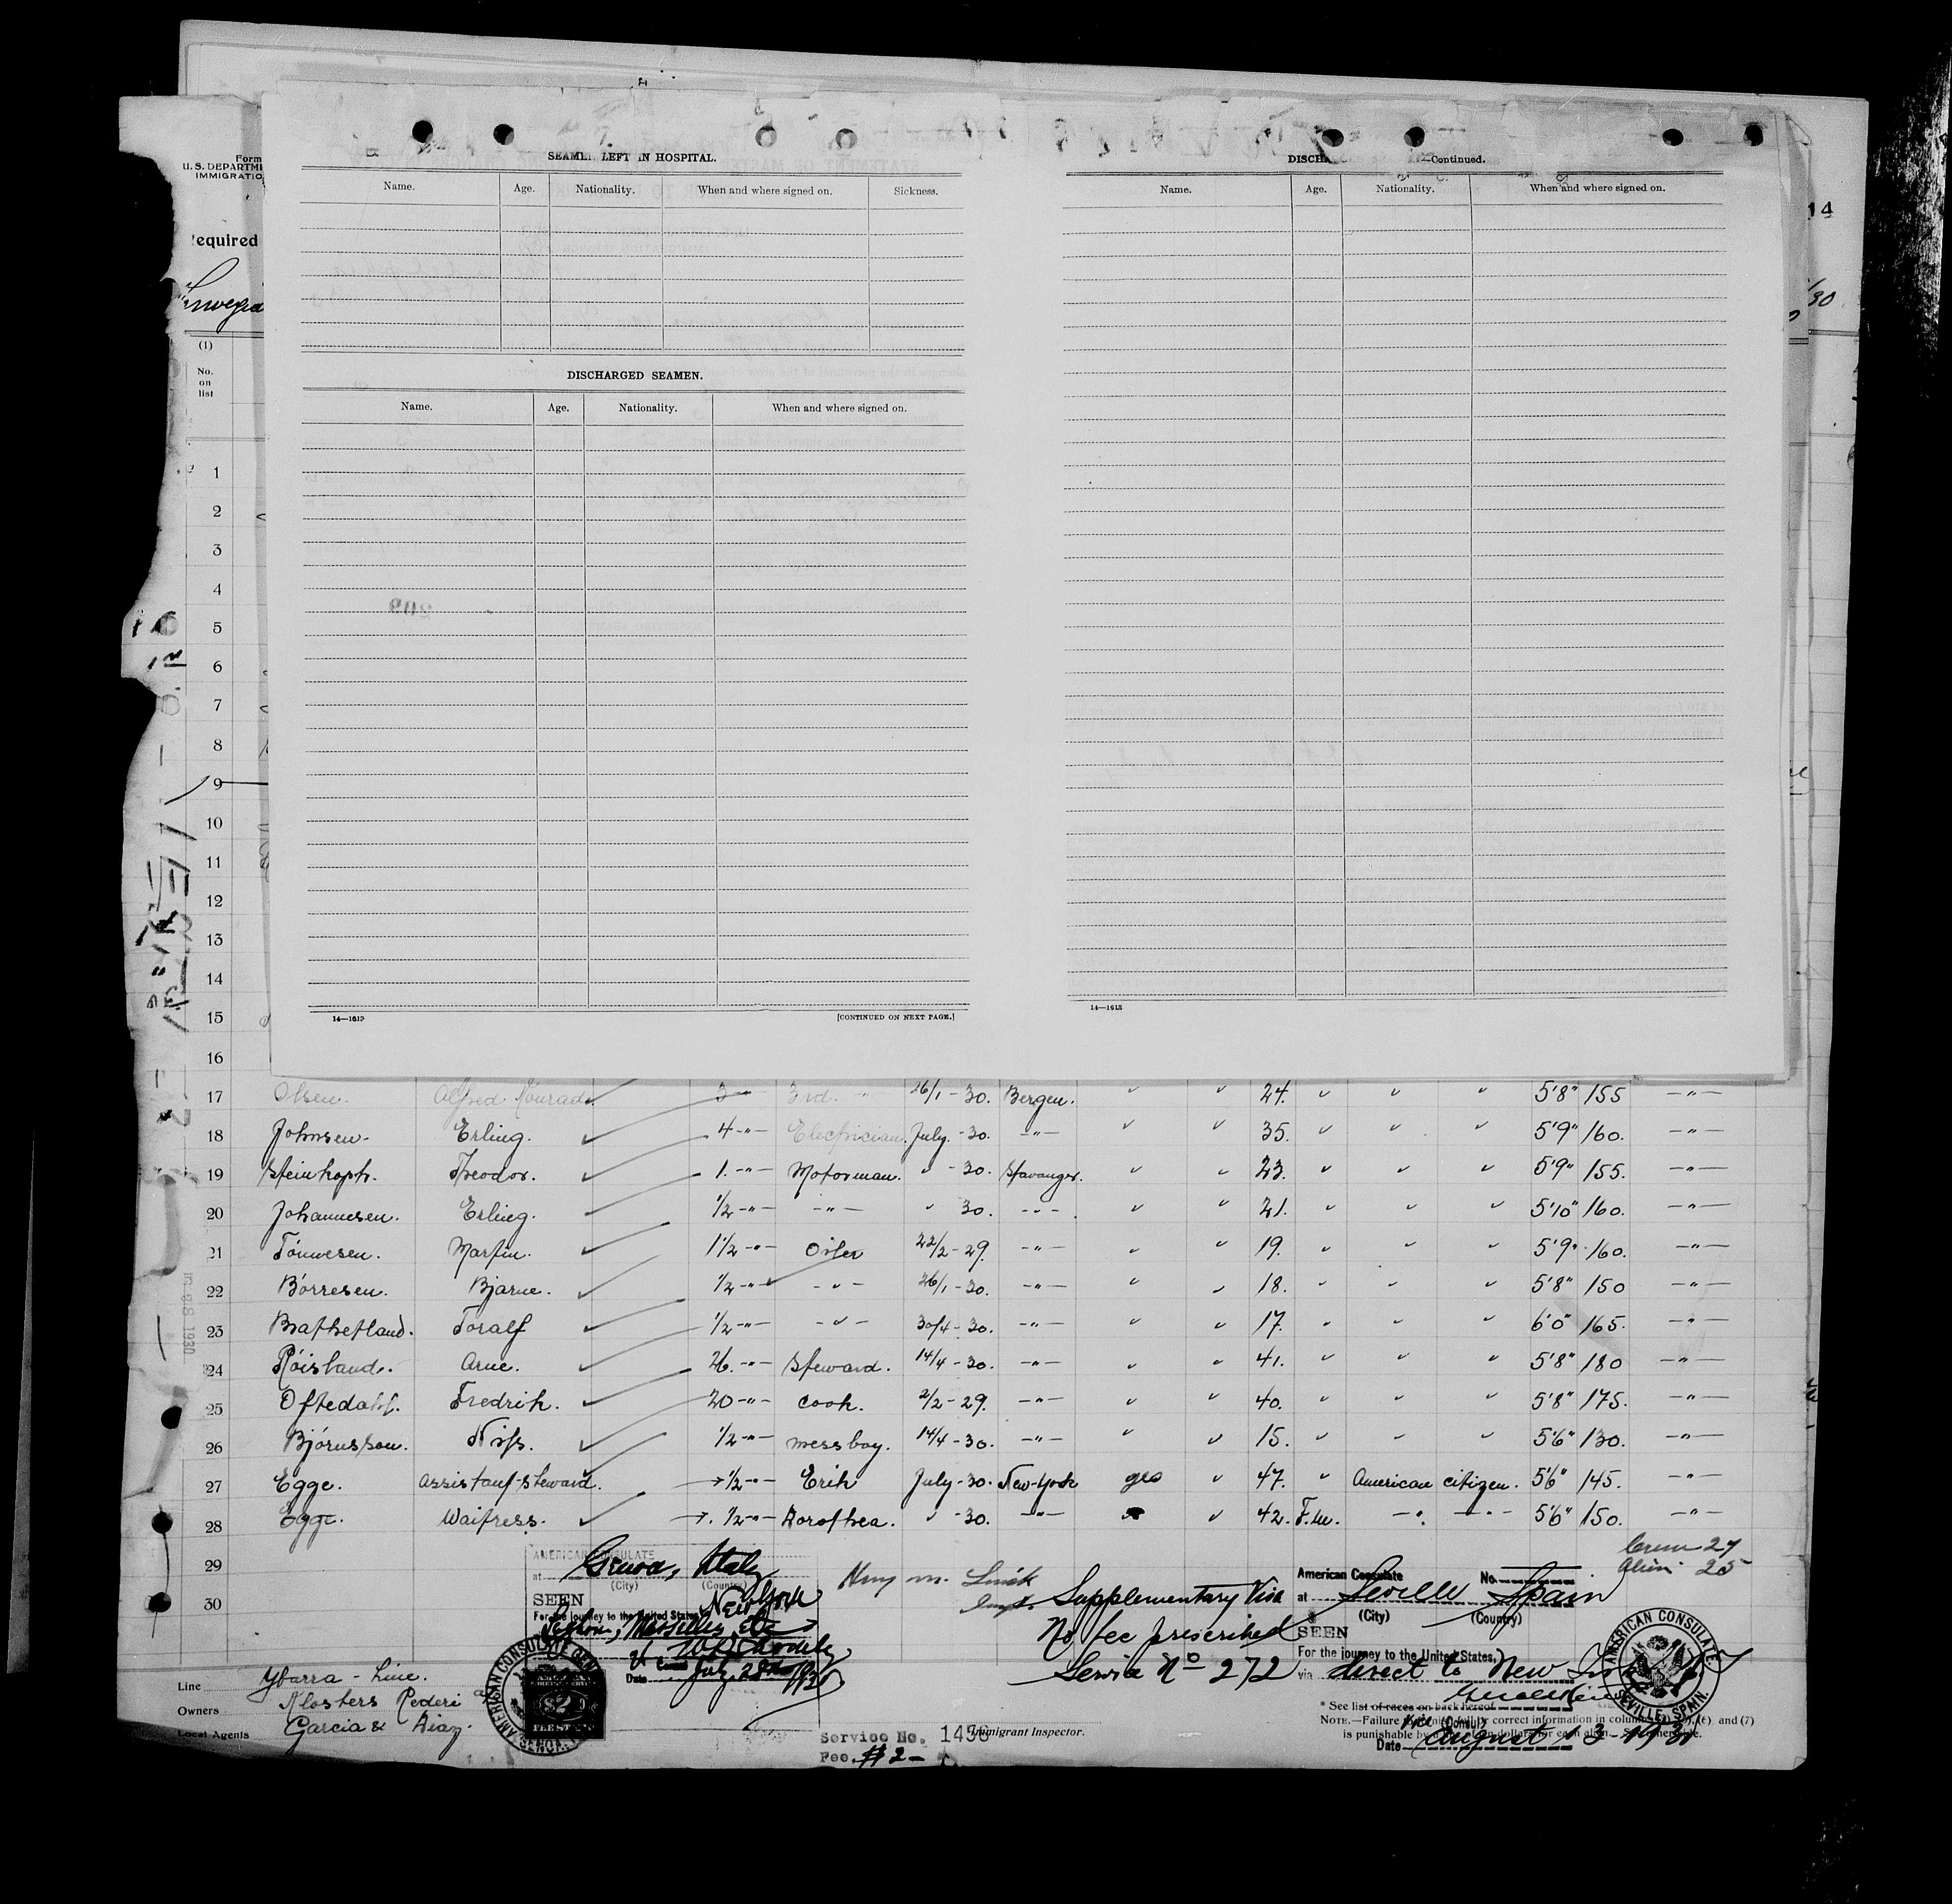 Form
U. S. DEPARTM
IMMIGRATIO
equired
(1)
No.
on
list
14
SEAMEN LEFT IN HOSPITAL.
Name. Age. Nationality. When and where signed on. Sickness.
DISCHARGED SEAMEN.
Name. Age. Nationality. When and where signed on.
14—1613 [CONTINUED ON NEXT PAGE.]
DISCHA —Continued.
Name. Age. Nationality. When and where signed on.
14—1613
1
2
3
4
5
6
7
8
9
10
11
12
13
14
15
16
17 Olsen. Alfred Konrad. 3 -"- 3rd. -"- 26/1 - 30. Bergen. " " 24. " " " 5'8" 155 -"-
18 Johnsen. Erling. 4 -"- Electrician. July. - 30. -"- " " 35. " " " 5'9" 160. -"-
19 Steinkoph. Theodor. 1. -"- Motorman. " - 30. Stavanger. " " 23. " " " 5'9" 155. -"-
20 Johannesen. Erling. 1/2 -"- -"- " 30. -"- " " 21. " " " 5'10" 160. -"-
21 Tönnesen. Martin. 1 1/2 -"- Oiler 22/2 - 29. -"- " " 19. " " " 5'9" 160. -"-
22 Börresen. Bjarne. 1/2 -"- -"- 26/1 - 30. -"- " " 18. " " " 5'8" 150 -"-
23 Brathetland. Toralf 1/2 -"- -"- 30/4 - 30. -"- " " 17. " " " 6'0" 165. -"-
24 Röisland. Arne. 26. -"- Steward. 14/4 - 30. -"- " " 41. " " " 5'8" 180 -"-
25 Oftedahl. Fredrik. 20 -"- Cook. 2/2 - 29. -"- " " 40. " " " 5'8" 175. -"-
26 Björnsson. Nils. 1/2 -"- messboy. 14/4 - 30. -"- " " 15. " " " 5'6" 130. -"-
27 Egge. Assistant-Steward. 1/2 -"- Erik July - 30. New-York yes " 47. " American citizen. 5'6" 145. -"-
28 Egge. Waitress. 1/2 -"- Dorothea. " - 30. -"- " 42. F.m. -"- -"- 5'6" 150. -"-
29
30
Crew 27
Alien 25
AMERICAN CONSULATE
at Genoa, Italy
(City) (Country)
SEEN New York
For the journey to the United States
Marseilles, etc
Date July 22nd 1930
AMERICAN CONSULATE GENERAL
$2
Service No. 1450
Fee. $2-
Immigrant Inspector.
Supplementary Visa
No fee prescribed
Service No 272
American Consulate No.
at Seville Spain
(City) (Country)
SEEN
For the journey to the United States,
via direct to New
(Consul)
Date August 13-1930
AMERICAN CONSULATE
SEVILLE, SPAIN.
* See list of races on back hereof
NOTE.—Failure correct information in columns (6), and (7)
is punishable by
Line Ybarra - Line.
Owners Klosters Rederi
Local Agents Garcia & Diaz.